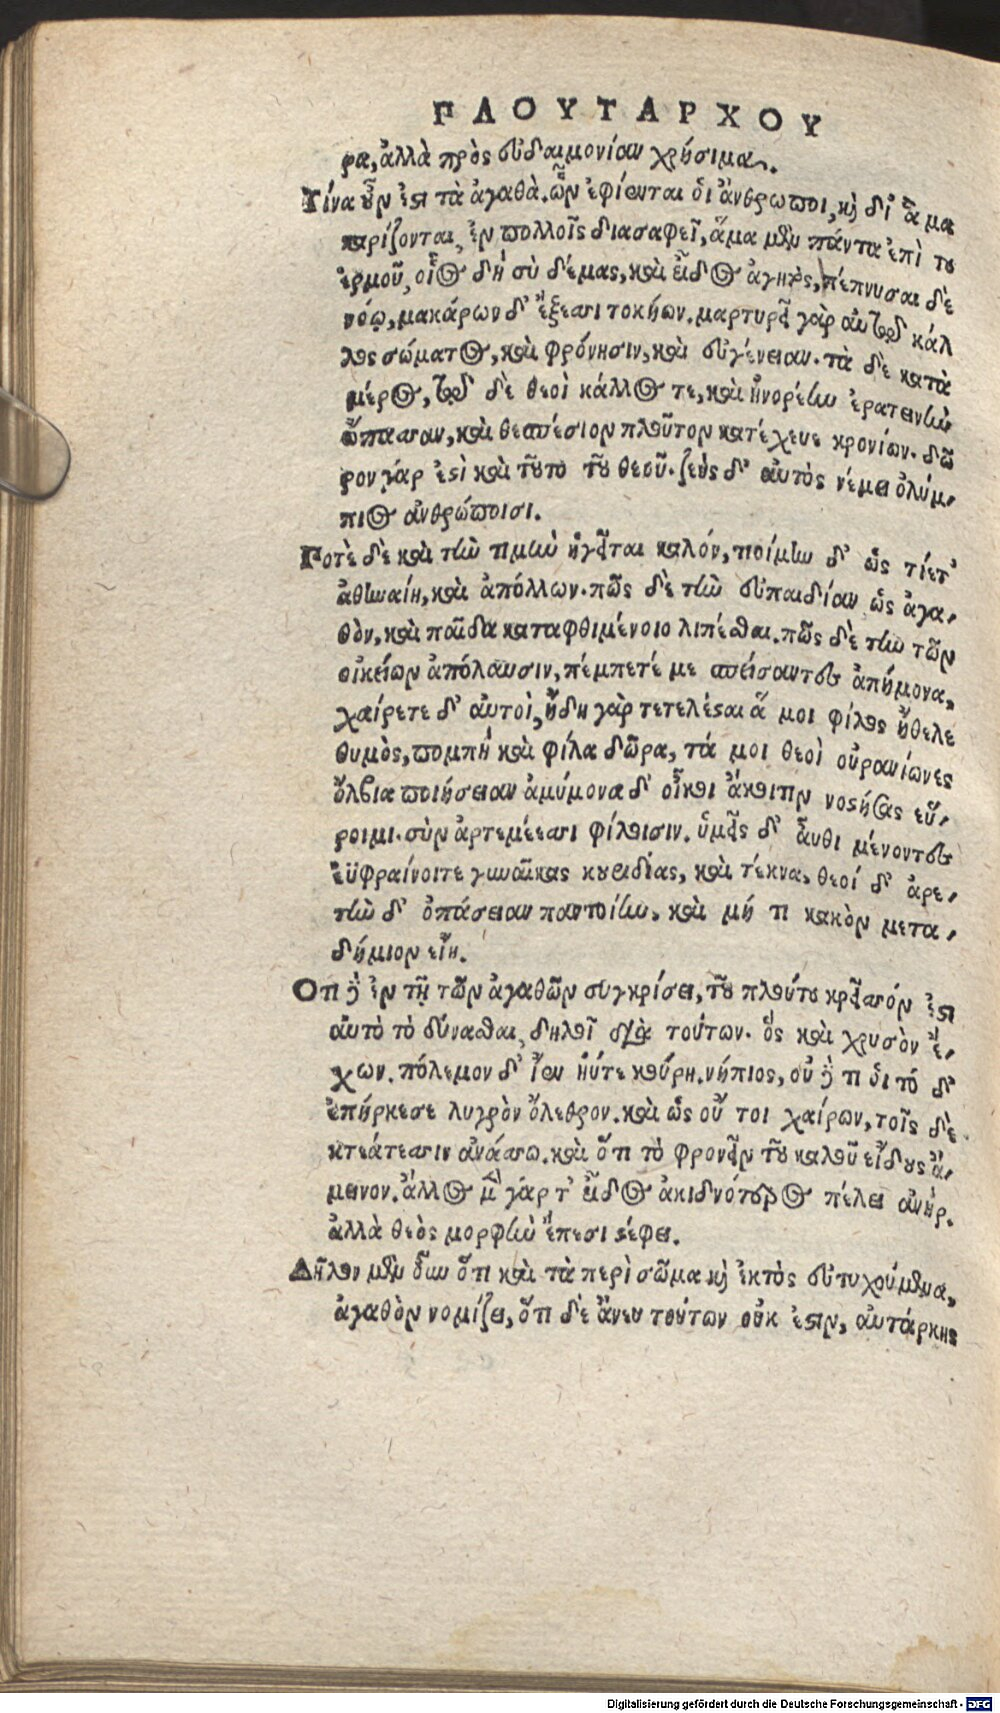 ΠΛΟΥΤΑΡΧΟΥ
ρα, ἀλλὰ πρὸς εὐδαιμονίαν χρήσιμα.
Τίνα οὖν ἐστι τὰ ἀγαθὰ. ὧν ἐφίενται ὁι ἄνθρωποι, καὶ δι' ἃ μα
καρίζονται, ἐν πολλοῖς διασαφεῖ, ἅμα μὲν πάντα ἐπὶ του
ἑρμοῦ, οἷος δὴ σὺ δέμας, καὶ εἶδος ἀγητὸς, πέπνυσαι δὲ
νόῳ, μακάρων δ' ἔξεσσι τοκήων. μαρτυρεῖ γὰρ αὐτῷ κάλ
λος σώματος, καὶ φρόνησιν, καὶ εὐγένειαν. τὰ δὲ κατὰ
μέρος, τῷ δὲ θεοὶ κάλλος τε, καὶ ἠνορέην ἐρατεινὴν
ὤπασαν, καὶ θεσπέσιον πλοῦτον κατέχευε κρονίων. δῶ
ρον γάρ ἐστὶ καὶ τοῦτο τοῦ θεοῦ. ζεὺς δ' αὐτὸς νέμει ὀλύμ-
πιος ἀνθρώποισι.
Ποτὲ δὲ καὶ τὴν τιμὴν ἡγεῖται καλόν, τιοίμην δ' ὡς τίετ'
ἀθηναίη, καὶ ἀπόλλων. πῶς δὲ τὴν εὐπαιδίαν ὡς ἀγα-
θὸν, καὶ παῖδα καταφθιμένοιο λιπέσθαι. πῶς δὲ τὴν τῶν
οἰκείων ἀπόλαυσιν, πέμπετέ με σπείσαντες ἀπήμονα,
χαίρετε δ' αὐτοὶ, ἤδη γὰρ τετελέσαι ἅ μοι φίλος ἤθελε
θυμὸς, πομπὴ καὶ φίλα δῶρα, τά μοι θεοὶ οὐρανίωνες
ὄλβια ποιήσειαν ἀμύμονα δ' οἴκοι ἄκοιτιν νοστήσας εὕ-
ροιμι. σὺν ἀρτεμέεσσι φίλοισιν. ὑμεῖς δ' αὖθι μένοντες
ἐϋφραίνοιτε γυναῖκας κουριδίας, καὶ τέκνα, θεοί δ' ἀρε-
τὴν δ' ὀπάσειαν παντοίην, καὶ μή τι κακὸν μετα-
δήμιον εἴη.
Οτι γὲ ἐν τῇ τῶν ἀγαθῶν συγκρίσει, τοῦ πλούτου κρεῖσσόν ἐστι
αὐτὸ τὸ δύνασθαι, δηλοῖ διὰ τούτων. ὃς καὶ χρυσὸν ἔ-
χων. πόλεμον δ' ἴεν ἠύτε κούρη. νήπιος, οὐ γέ τι ὁι τό δ'
ἐπήρκεσε λυγρὸν ὄλεθρον. καὶ ὡς οὔ τοι χαίρων, τοῖς δὲ
κτεάτεσσιν ἀνάσσω. καὶ ὅτι τὸ φρονεῖν τοῦ καλοῦ εἴδους ἄ-
μεινον. ἄλλος μὲν γάρ τ' εἶδος ἀκιδνότερος πέλει ἀνὴρ.
ἀλλὰ θεὸς μορφὴν ἔπεσι στέφει.
Δῆλον μὲν οὖν ὅτι καὶ τὰ περὶ σῶμα καὶ ἐκτὸς εὐτυχούμενα,
ἀγαθὸν νομίζει, ὅτι δὲ ἄνευ τούτων οὐκ ἐστιν, αὐτάρκης
Digitalisierung gefördert durch die Deutsche Forschungsgemeinschaft - DFG